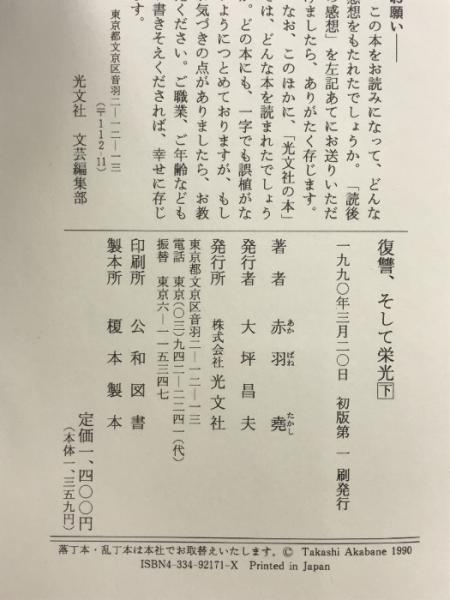 お願い――
この本をお読みになって、どんな
感想をもたれたでしょうか。「読後
の感想」を左記あてにお送りいただ
けましたら、ありがたく存じます。
なお、このほかに、「光文社の本」
では、どんな本を読まれたでしょう
か。どの本にも、一字でも誤植がな
いようにつとめておりますが、もし
お気づきの点がありましたら、お教
えください。ご職業、ご年齢なども
お書きそえくだされば、幸せに存じ
ます。
東京都文京区音羽二―一二―一三
(〒112-11)
光文社 文芸編集部
復讐、そして栄光 下
一九九〇年三月二〇日 初版第一刷発行
著者 赤羽堯
あかばね たかし
発行者 大坪昌夫
発行所 株式会社 光文社
東京都文京区音羽二―一二―一三
電話 東京(〇三)九四二―二二四一(代)
振替 東京六―一一五三四七
印刷所 公和図書
製本所 榎本製本
定価一、四〇〇円
(本体一、三五九円)
落丁本・乱丁本は本社でお取替えいたします。© Takashi Akabane 1990
ISBN4-334-92171-X Printed in Japan